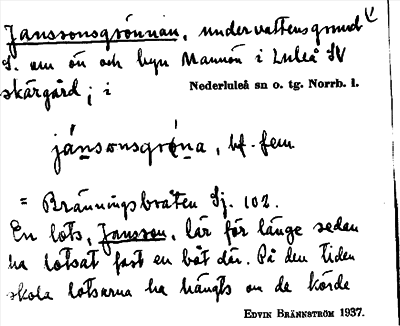 Janssonsgrönnan, undervattensgrund
S. om ön och byn Mannön i Luleå SV
skärgård; i
Nederluleå sn o. tg. Norrb. l.
jánsonsgrö́na, bf. fem
= Bränningsbraken Sj. 102.
En lots, Jansson, lär för länge sedan
ha lotsat fast en båt där. På den tiden
skola lotsarna ha hängts om de körde
EDVIN BRÄNNSTRÖM 1937.